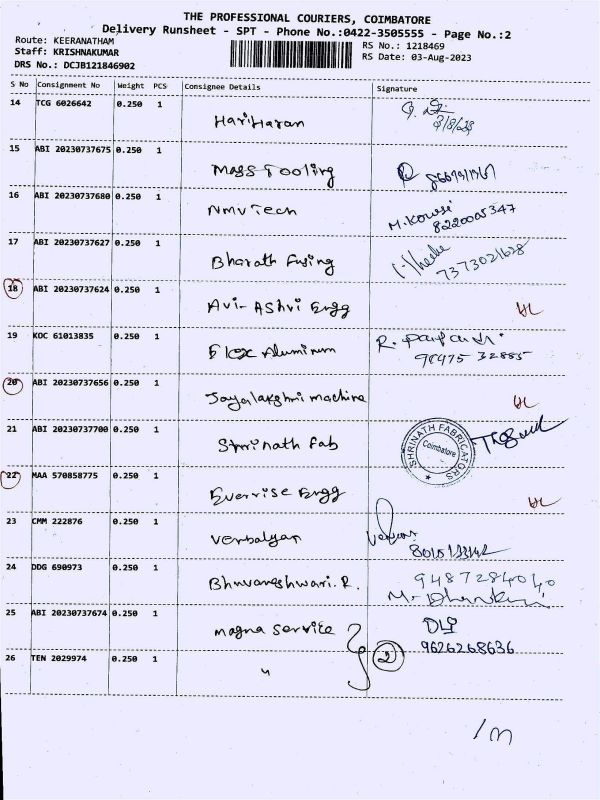 THE PROFESSIONAL COURIERS, COIMBATORE
Delivery Runsheet - SPT - Phone No.:0422-3505555 - Page No.:2
Route: KEERANATHAM
Staff: KRISHNAKUMAR
DRS No.: DCJB121846902
RS No.: 1218469
RS Date: 03-Aug-2023
S No Consignment No Weight PCS Consignee Details Signature
14 TCG 6026642 0.250 1
HariHaran
3/8/623
15 ABI 20230737675 0.250 1
Mass Tooling
16 ABI 20230737680 0.250 1
NMV Tech M.Kowsi
8220005347
17 ABI 20230737627 0.250 1
Bharath Fusing
7373021628
18 ABI 20230737624 0.250 1
Avi-Ashvi Engg
19 KOC 61013835 0.250 1
Flex Aluminum R.
98975 32885
20 ABI 20230737656 0.250 1
Jayalakshmi machine
21 ABI 20230737700 0.250 1
Shrinath Fab
SHRINATH FABRICATORS
Coimbatore
22 MAA 570858775 0.250 1
Everrise Engg
23 CMM 222876 0.250 1
Verbalyan
24 DDG 690973 0.250 1
Bhuvaneshwari.R. 9487284040
25 ABI 20230737674 0.250 1
Magna Service
9626268636
26 TEN 2029974 0.250 1
"
2